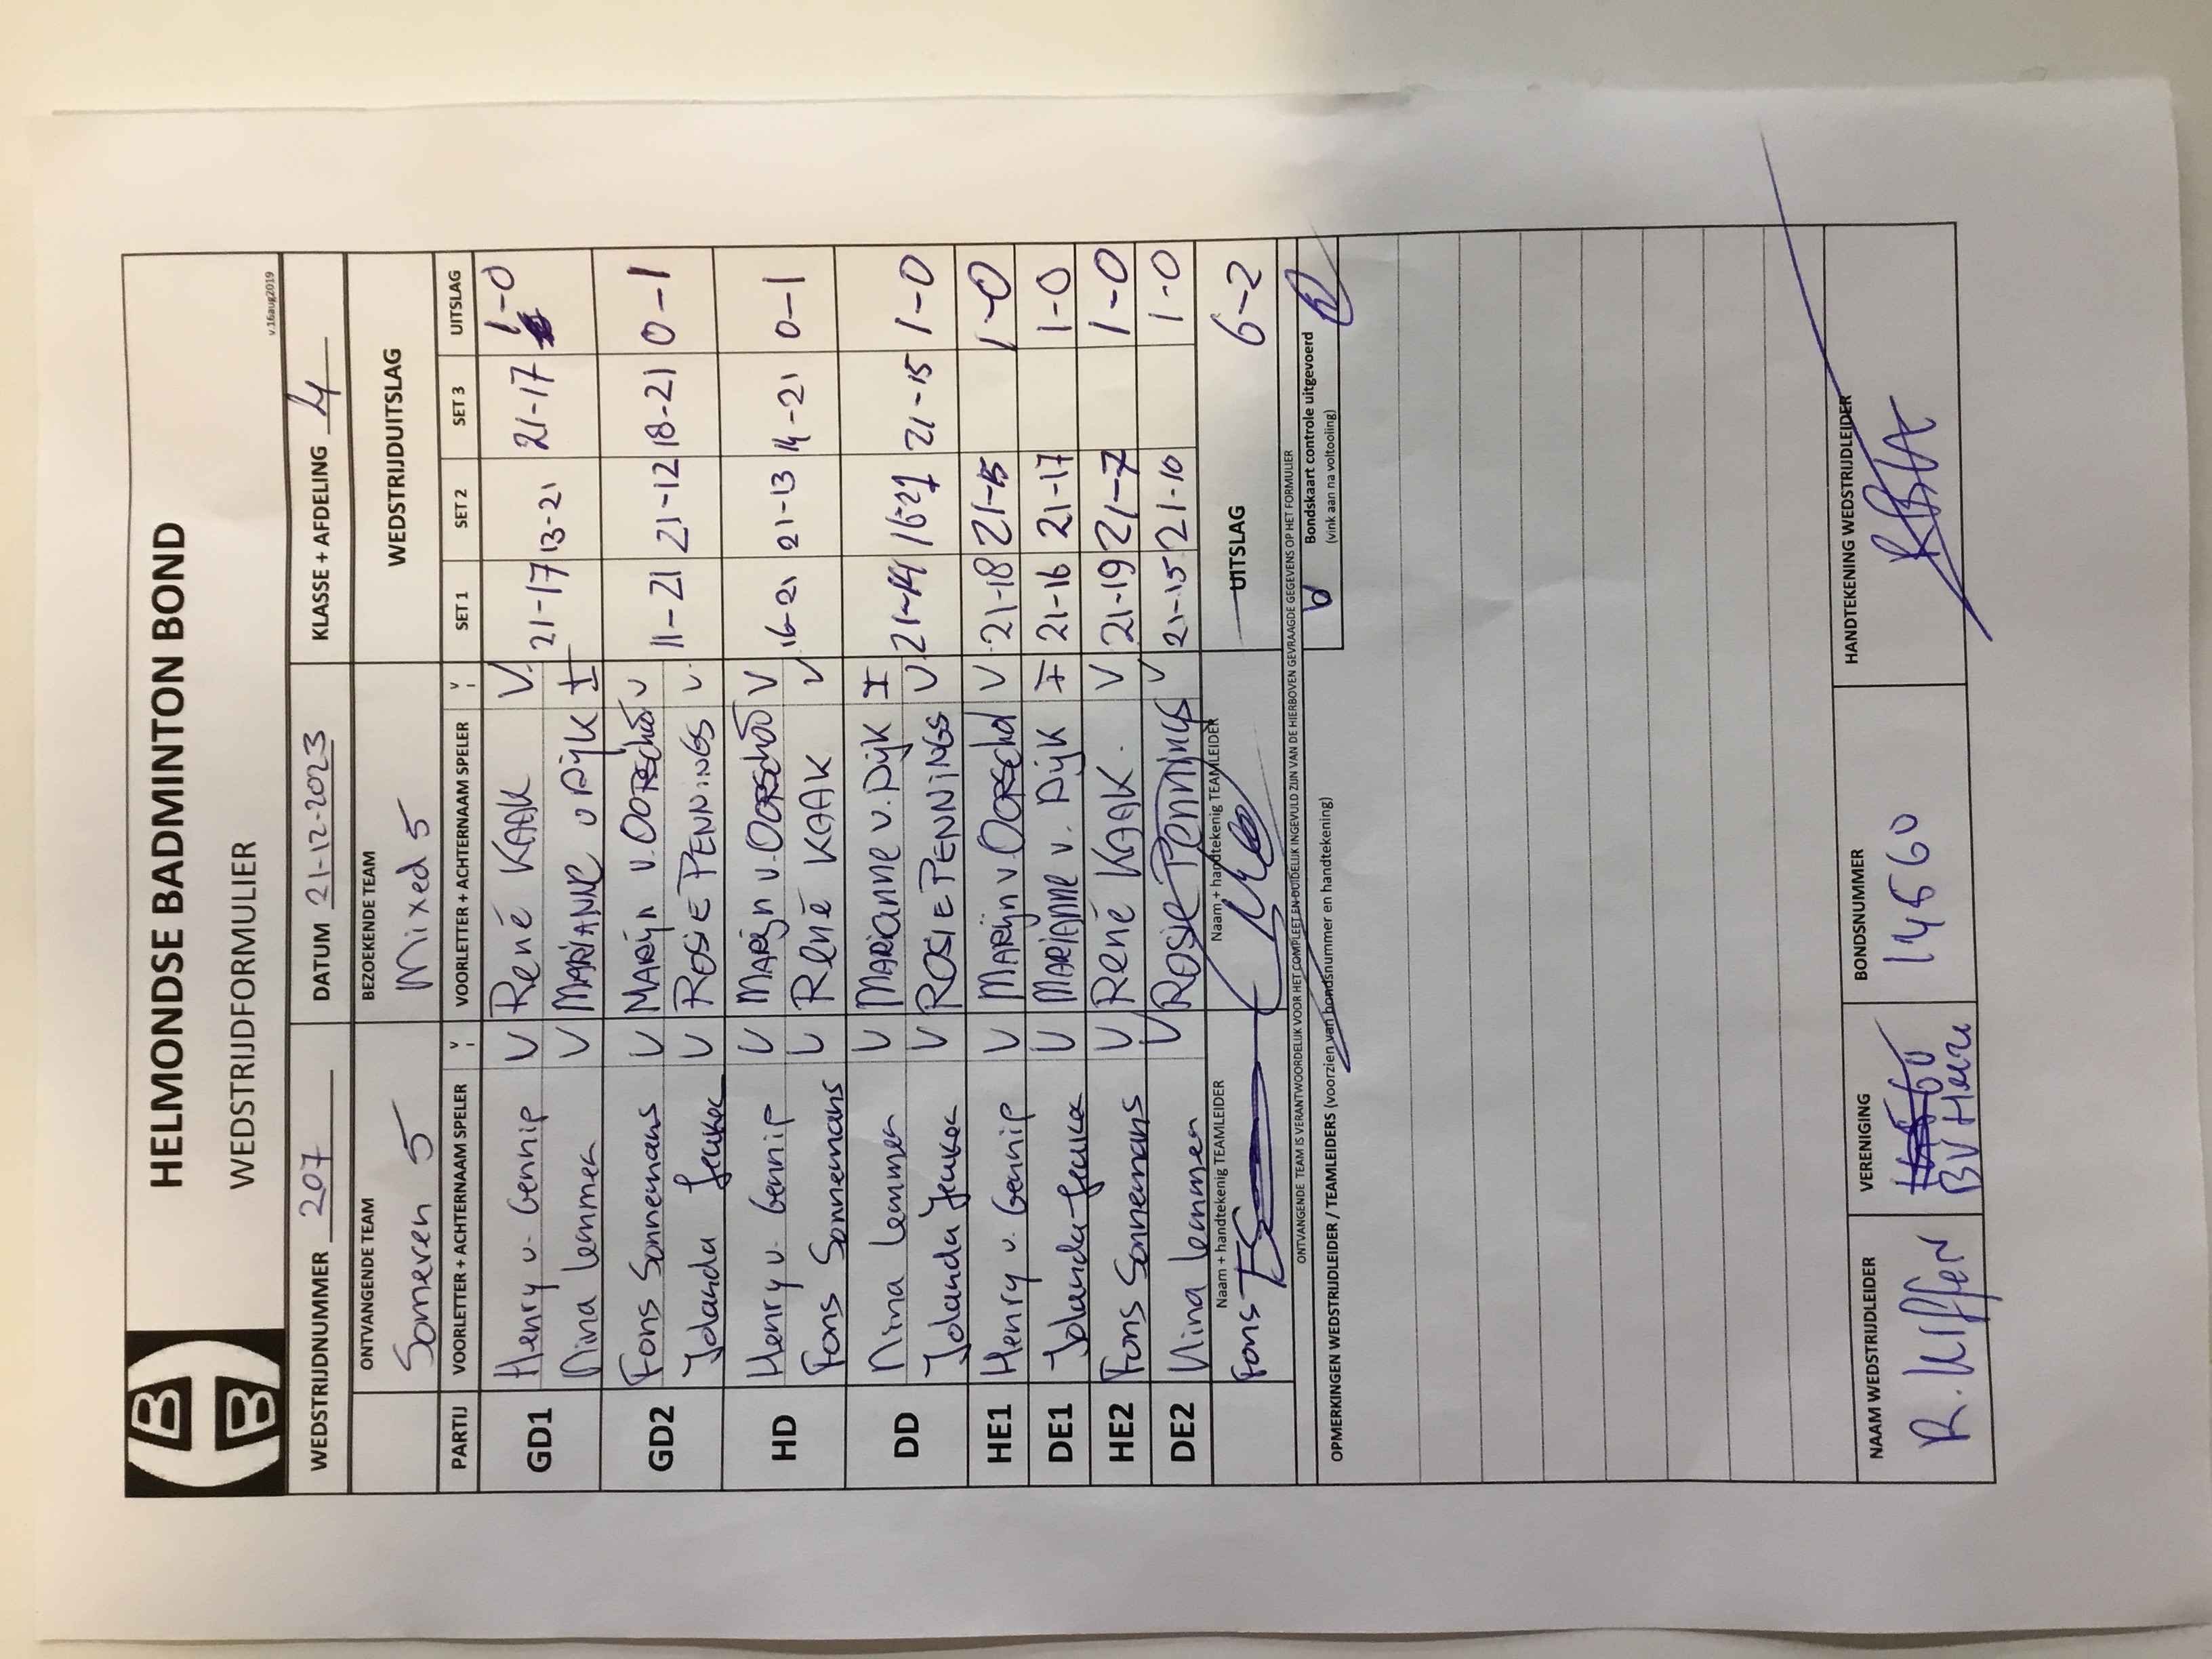 HELMONDSE BADMINTON BOND
WEDSTRIJDFORMULIER
v.16aug2019
WEDSTRIJDNUMMER 207 DATUM 21-12-2023 KLASSE + AFDELING 4
ONTVANGENDE TEAM BEZOEKENDE TEAM WEDSTRIJDUITSLAG
Someren 5 Mixed 5
PARTIJ VOORLETTER + ACHTERNAAM SPELER V VOORLETTER + ACHTERNAAM SPELER V SET 1 SET 2 SET 3 UITSLAG
GD1 Henry v. Gennip V René KAAK V 21-17 13-21 21-17 1-0
Nina Lemmen V MARIANNE v DIJK I
GD2 Fons Sonnemans V MARIJN v. OORSchot V 11-21 21-12 18-21 0-1
Jolanda V ROSIE PENNINGS V
HD Henry v. Gennip V MARIJN v. OORSchot V 16-21 21-13 14-21 0-1
Fons Sonnemans V René KAAK V
DD Nina Lemmen V MARIANNE v. DIJK I 21-14 21-15 1-0
Jolanda V ROSIE PENNINGS V
HE1 Henry v. Gennip V MARIJN v. OORSchot V 21-18 21-15 1-0
DE1 Jolanda V MARIANNE v. DIJK I 21-16 21-17 1-0
HE2 Fons Sonnemans V René KAAK. V 21-19 21-7 1-0
DE2 Nina Lemmen V ROSIE Pennings V 21-15 21-10 1-0
Naam + handtekenig TEAMLEIDER Naam + handtekenig TEAMLEIDER UITSLAG 6-2
Fons
ONTVANGENDE TEAM IS VERANTWOORDELIJK VOOR HET COMPLEET EN DUIDELIJK INGEVULD ZIJN VAN DE HIERBOVEN GEVRAAGDE GEGEVENS OP HET FORMULIER
OPMERKINGEN WEDSTRIJDLEIDER / TEAMLEIDERS (voorzien van bondsnummer en handtekening) V Bondskaart controle uitgevoerd
(vink aan na voltooiing)
NAAM WEDSTRIJDLEIDER VERENIGING BONDSNUMMER HANDTEKENING WEDSTRIJDLEIDER
R. BV 14560